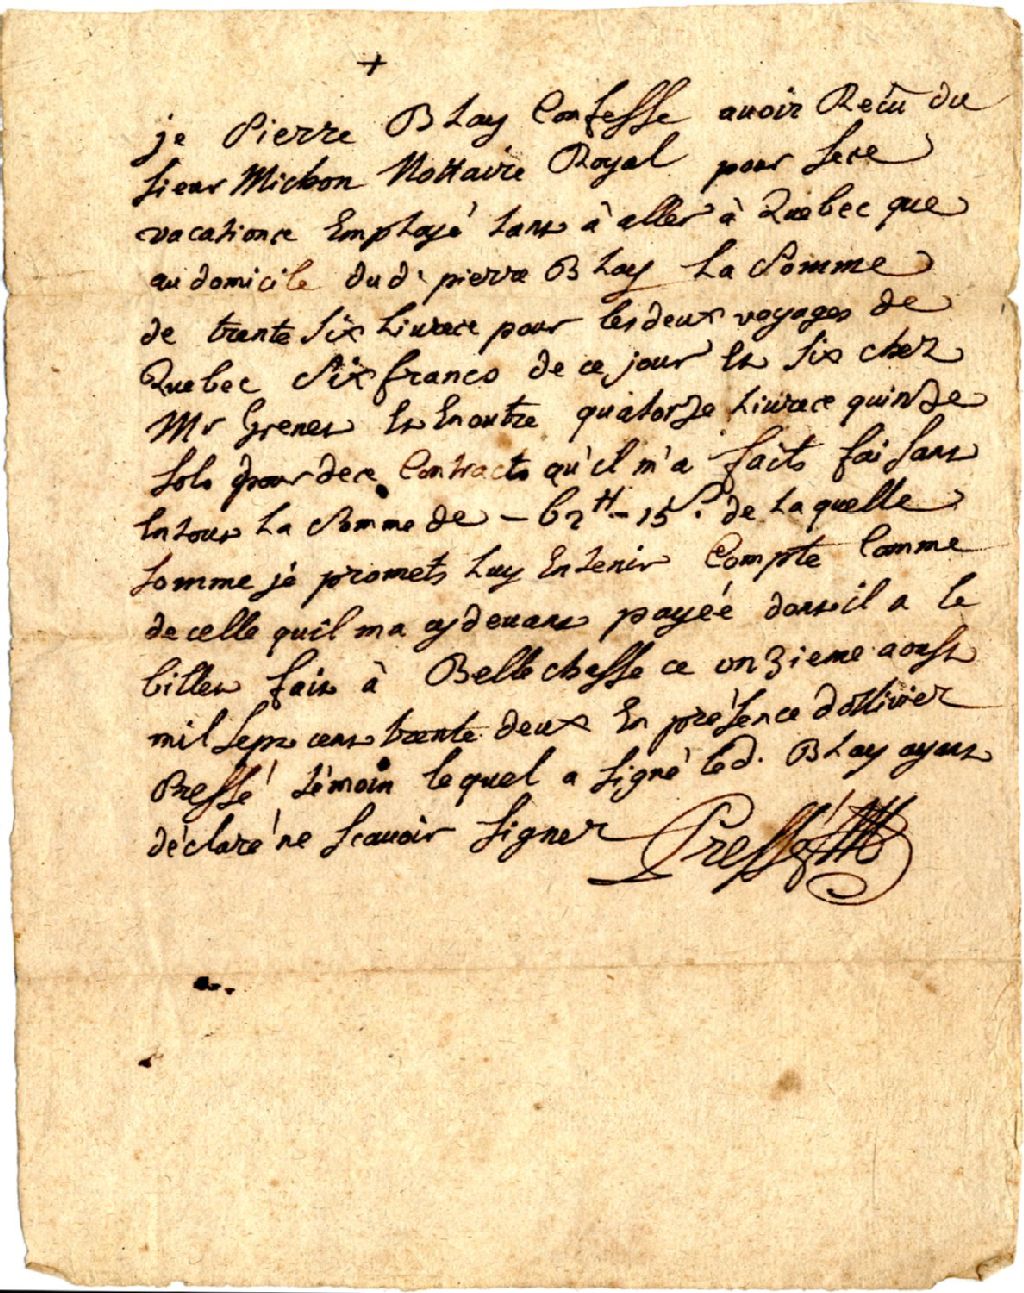 +
je Pierre Blay Confesse avoir Recû du
sieur Michon Nottaire Royal pour sece
vacationce Employé tant à aller à Quebec que
au domicile dud: pierre Blay La Somme
de trente six Livrece pour les deux voyages de
Quebec Six francs de ce jour et six chez
Mr Grenet et En outre quatorze Livrece quinze
sols pour dece Contracts qu'il m'a faits faisant
En tout La Somme de - 62tt - 15s. de Laquelle
somme je promets Luy En tenir Compte Comme
de celle quil ma cy devant payéé dont il a le
billet fait à Bellechasse ce onzieme aoust
mil sept cent trente deux En présence d'ollivier
Pressé témoin lequel a signé led. Blay ayant
déclaré ne scavoir signer Pressé